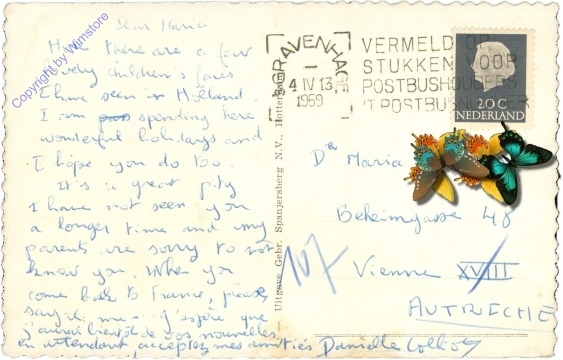 Dear Maria
Here there are a few
lovely children's faces
I have seen in Holland.
I am spending here
wonderful holidays and
I hope you do too.
It's a great pity
I have not seen you
a longer time and my
parents are sorry to not
know you. When you
come back to France, please
say it me. J'espère que
j'aurai bientôt de vos nouvelles!
en attendant acceptez mes amitiés Danielle
Copyright by Wimstore
Uitgave Gebr. Spanjersberg N.V., Rotterdam
'S GRAVENHAGE
4 IV 13
1959
VERMELD OP
STUKKEN VOOR
POSTBUSHOUDERS
'T POSTBUSNUMMER
20C
NEDERLAND
Dr Maria
Beheimgasse 48
107
Vienne XVIII
AUTRICHE